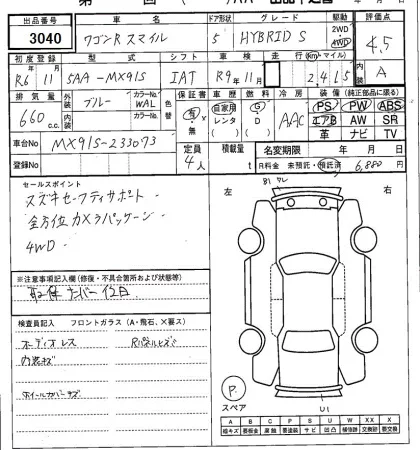 出品番号 車名 ドア形状 グレード 駆動 評価点
3040 ワゴンR スマイル 5 HYBRID S 2WD 4WD 4.5
初度登録 型式 シフト 車検 走行 (km・マイル) 内装
R6年11月 5AA-MX91S IAT R9年11月 2,415 A
排気量 外装 色 カラーNo. 色替 保証書 車歴 燃料 冷房 装備 (純正部品に限る)
660 c.c. ブルー WAL 有・無 自家用 レンタ D G D AAC PS PW ABS
内装 カラーNo. エアB AW SR
革 ナビ TV
車台No MX91S-233073 定員 4人 積載量 t 名変期限 年 月 日
登録No R料金 未預託・預託済 6,880円
セールスポイント
スズキセーフティサポート
全方位カメラパッケージ
4WD
左 右
※注意事項記入欄 (修復・不具合箇所および状態等)
取・保 ナンバー 位日
検査員記入 フロントガラス (A・飛石、×要ス)
オーディオレス Rパネルヒズ
内装キズ
ホイールカバーキズ
P.
スペア
U1
A B C P S U W X XX